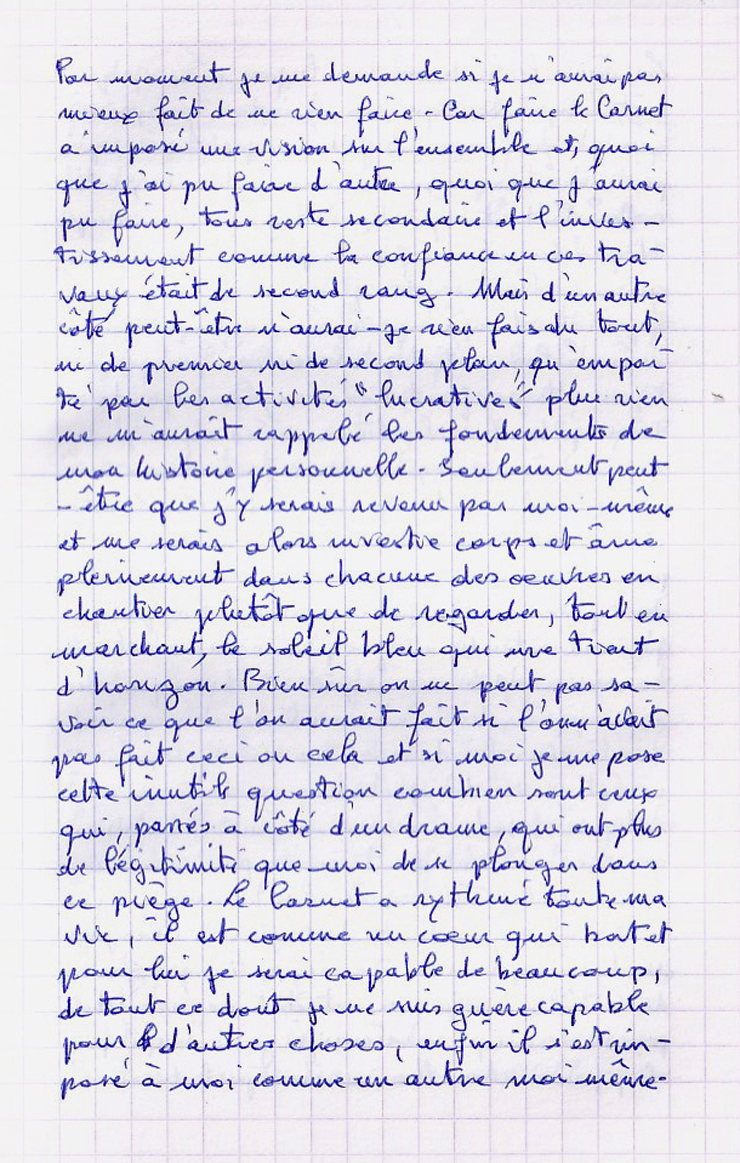 Par moment je me demande si je n'aurai pas
mieux fait de ne rien faire - Car faire le Carnet
a imposé une vision sur l'ensemble et, quoi
que j'ai pu faire d'autre, quoi que j'aurai
pu faire, tous reste secondaire et l'inves-
tissement comme la confiance en ces tra-
vaux était de second rang. Mais d'un autre
côté peut-être n'aurai-je rien fais du tout,
ni de premier ni de second plan, qu'empor-
té par les activités "lucratives" plus rien
ne m'aurait rappelé les fondements de
mon histoire personnelle. Seulement peut
-être que j'y serais revenu par moi-même
et me serais alors investie corps et âme
pleinement dans chacune des oeuvres en
chantier plutôt que de regarder, tout en
marchant, le soleil bleu qui me tient
d'horizon. Bien sûr on ne peut pas sa-
voir ce que l'on aurait fait si l'on n'avait
pas fait ceci ou cela et si moi je me pose
cette inutile question combien sont ceux
qui, passés à côté d'un drame, qui ont plus
de légitimité que moi de se plonger dans
ce piège. Le Carnet a rythmé toute ma
vie, il est comme un coeur qui bat et
pour lui je serai capable de beaucoup,
de tout ce dont je ne suis guère capable
pour d'autres choses, enfin il s'est im-
posé à moi comme un autre moi même.